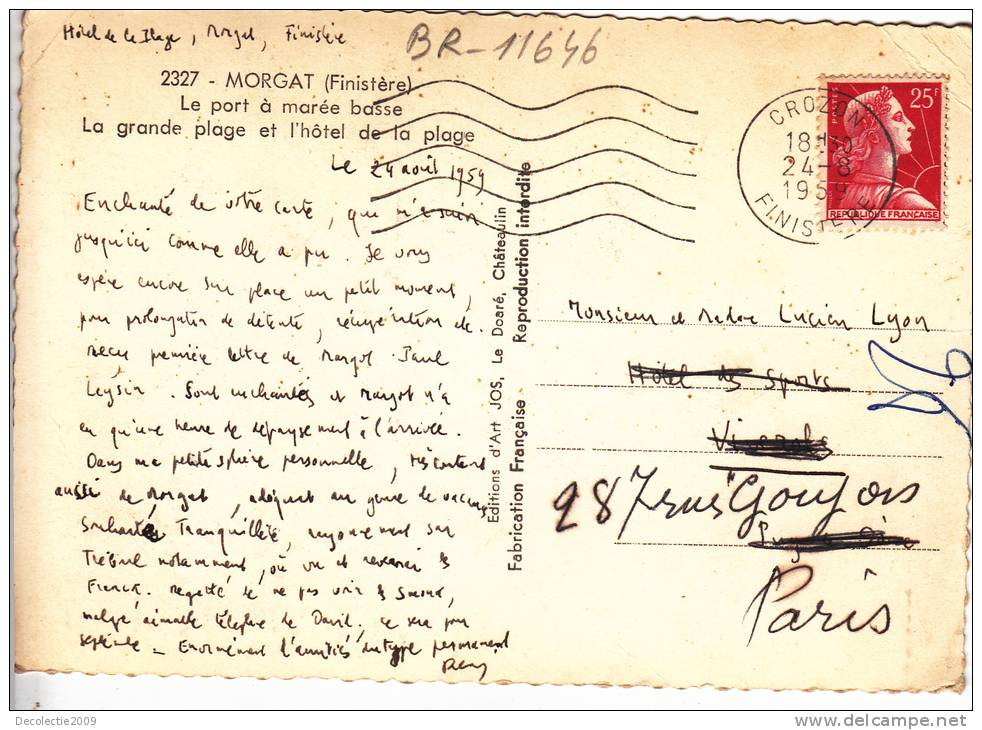 Hôtel de la Plage, Morgat, Finistère
BR-11646
2327 - MORGAT (Finistère)
Le port à marée basse
La grande plage et l'hôtel de la plage
CROZON
18H30
24-8
1959
FINISTERE
POSTES
25F
REPUBLIQUE FRANÇAISE
Le 24 août 1959
Enchanté de votre carte, que m'a suivi
jusqu'ici comme elle a pu. Je vous
espère encore sur place un petit moment,
pour prolongation de détente, récupération etc.
Reçu première lettre de Margot Paul
Leysin. Sont enchantés et Margot n'a
eu qu'une heure de dépaysement à l'arrivée.
Dans ma petite sphère personnelle, très content
aussi de Morgat, adéquat au genre de vacances
souhaité. Tranquillité, rayonnement sur
notamment, où vu et
Franck. Regretté de ne pas voir
malgré aimable téléphone de David. Ce sera pour
septembre - Enormément d'amitiés du type permanent
Editions d'Art JOS, Le Doaré, Châteaulin
Fabrication Française Reproduction interdite
Monsieur et Madame Lucien Lyon
Hôtel des Sports
28 rue Goujon
Paris
Decolectie2009
www.delcampe.net